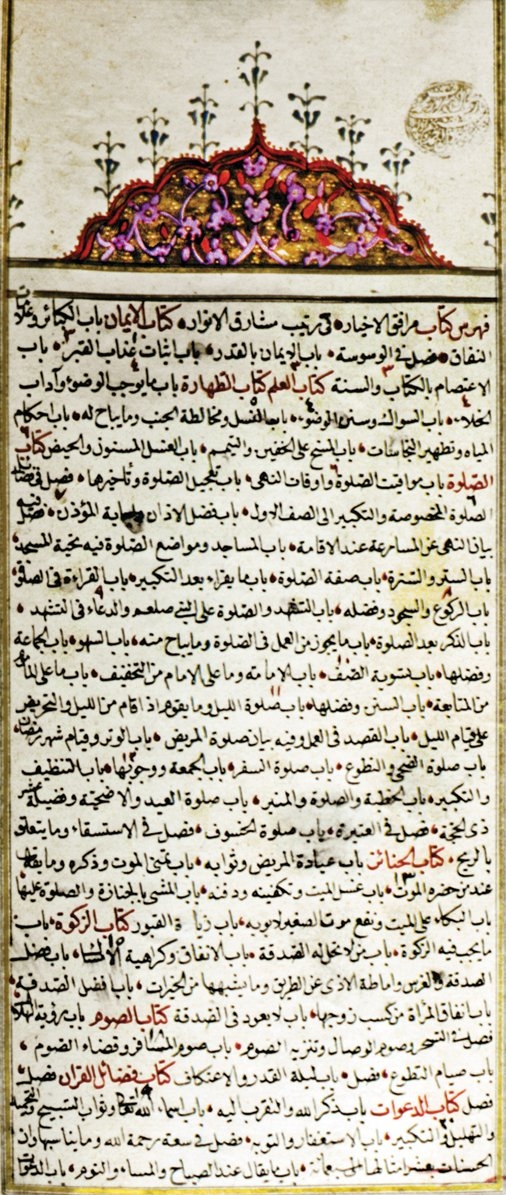 فهرس كتاب مرافق الاخيار في ترتيب مشارق الانوار كتاب الايمان باب الكبائر وعلامات
النفاق فصل في الوسوسة باب الايمان بالقدر باب اثبات عذاب القبر باب
الاعتصام بالكتاب والسنة كتاب العلم كتاب الطهارة باب ما يوجب الوضوء وآداب
الخلاء باب السواك وسنن الوضوء باب الغسل ومخالطة الجنب وما يباح له باب احكام
المياه وتطهير النجاسات باب المسح على الخفين والتيمم باب الغسل المسنون والحيض كتاب
الصلوة باب مواقيت الصلوة واوقات النهي باب تعجيل الصلوة وتاخيرها فصل في فضائل
الصلوة المخصوصة والتكبير الى الصف الاول باب فضل الاذان المؤذن فصل فيه
بيان النهي عن المسارعة عند الاقامة باب المساجد ومواضع الصلوة فيه تحية المسجد
باب الستر والسترة باب صفة الصلوة باب ما يقراء بعد التكبير باب القراءة في الصلوة
باب الركوع والسجود وفضله باب التشهد والصلوة على النبي صلعم والدعاء في التشهد
باب الذكر بعد الصلوة باب ما يجوز من العمل في الصلوة وما يباح منه باب السهو باب الجماعة
وفضلها باب تسوية الصف باب الامامة وما على الامام من التخفيف باب ما على الماموم
من المتابعة باب السنن وفضلها باب صلوة الليل وما يقوم اذا قام من الليل والتحريض
على قيام الليل باب القصد في العمل وفيه بيان صلوة المريض باب الوتر وقيام شهر رمضان
باب صلوة الضحى والتطوع باب صلوة السفر باب الجمعة ووجوبها باب التنظيف
والتكبير باب الخطبة والصلوة والمنبر باب صلوة العيد والاضحية وفضيلة عشر
ذي الحجة فصل في العتيرة باب صلوة الخسوف فصل في الاستسقاء وما يتعلق
بالريح كتاب الجنائز باب عيادة المريض وثوابه باب تمنى الموت وذكره وما يقال
عند من حضره الموت باب غسل الميت وتكفينه ودفنه باب المشي بالجنازة والصلوة عليها
باب البكاء على الميت ونفع موت الصغير لابويه باب زيارة القبور كتاب الزكوة باب
ما يجب فيه الزكوة باب من لا تحل له الصدقة باب الانفاق وكراهية الامساك باب فضل
الصدقة والغرس واماطة الاذى عن الطريق وما يشبهها من الخيرات باب فضل الصدقة
باب انفاق المرأة من كسب زوجها باب لا يعود في الصدقة كتاب الصوم باب رؤية الهلال
فصل في السحر وصوم الوصال وتنزيه الصوم باب صوم المسافر وقضاء الصوم
باب صيام التطوع فصل باب ليلة القدر والاعتكاف كتاب فضائل القران فصل
فصل كتاب الدعوات باب ذكر الله والتقرب اليه باب اسماء الله تعالى وثواب التسبيح والتحميد
والتهليل والتكبير باب الاستغفار والتوبه فصل في سعة رحمة الله وما يناسبها وان
الحسنات بعشر امثالها باب ما يقال عند الصباح والمساء والنوم باب الدعوات